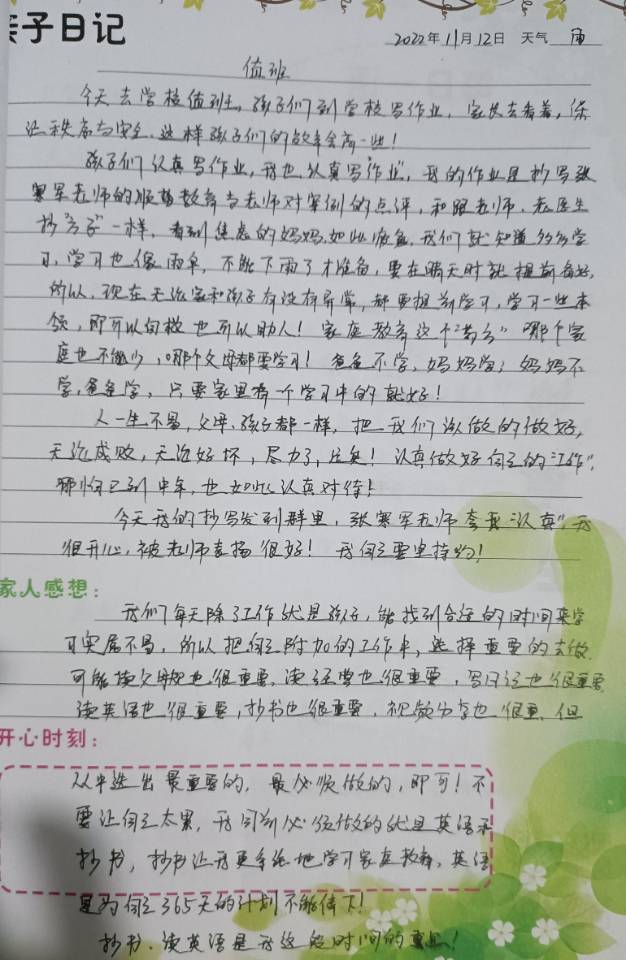 亲子日记
2022年11月12日 天气 雨
值班
今天去学校值班, 孩子们到学校写作业, 家长去看着, 保
证秩序与安全. 这样孩子们的效率会高一些!
孩子们认真写作业, 我也认真写"作业", 我的作业是抄写张
寒军老师的顺势教育与老师对案例的点评, 和跟老师、老医生
抄"方子"一样, 看到焦虑的妈妈如此疲惫, 我们就知道多多学
习, 学习也像雨伞, 不能下雨了才准备, 要在晴天时就提前备好,
所以, 现在无论家和孩子有没有异常, 都要提前学习, 学习一些本
领, 即可以自救也可以助人! 家庭教育这个"药方" 哪个家
庭也不能少, 哪个父母都要学习! 爸爸不学, 妈妈学; 妈妈不
学, 爸爸学, 只要家里有一个学习中的就好!
人一生不易, 父母、孩子都一样, 把我们该做的做好,
无论成败, 无论好坏, 尽力了, 足矣! 认真做好自己的"工作",
哪怕已到中年, 也如此认真对待!
今天我的抄写发到群里, 张寒军老师夸我"认真", 我
很开心, 被老师表扬很好! 我自己要坚持的!
家人感想:
我们每天除了工作就是孩子, 能找到合适的时间来学
习实属不易, 所以把自己附加的工作中, 选择重要的去做.
可能读父母规也很重要, 读经典也很重要, 写日记也很重要
读英语也很重要, 抄书也很重要, 视频分享也很重, 但
开心时刻:
从中选出最重要的, 最必须做的, 即可! 不
要让自己太累, 我目前必须做的就是英语和
抄书, 抄书让我更系统地学习家庭教育, 英语
是为自己365天的计划不能停下!
抄书、读英语是我这段时间的重点!